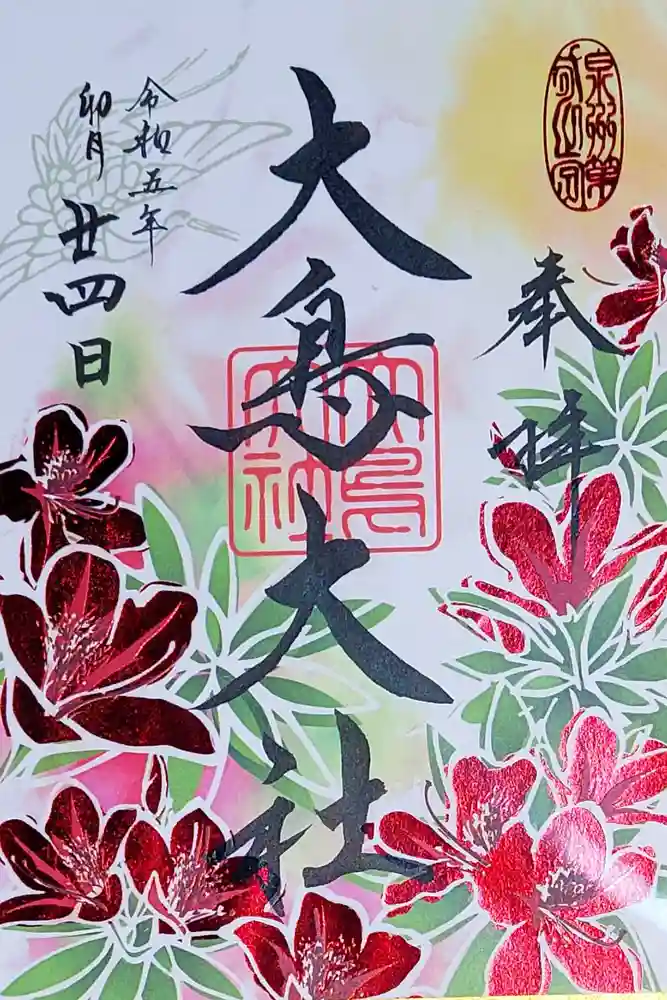 泉州第
弌之宮
奉拝
大鳥大社
大鳥
大社
令和五年
卯月
廿四日